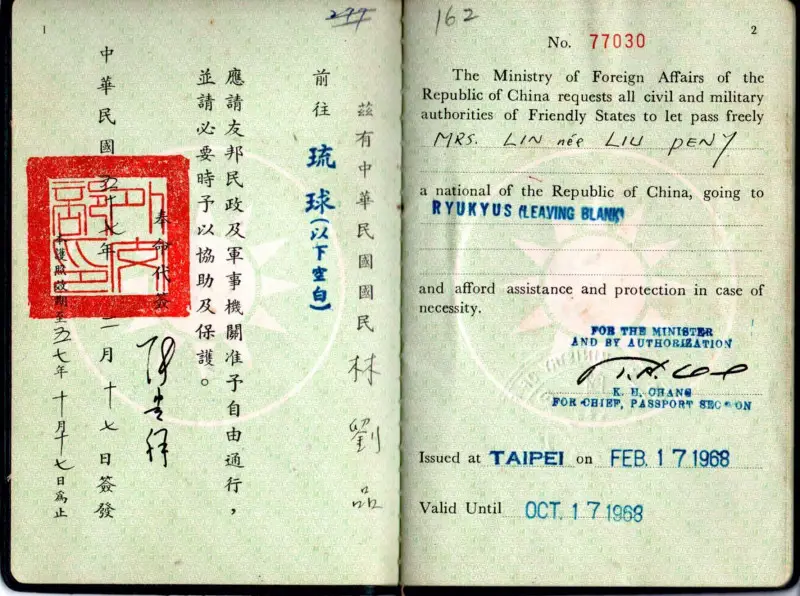 1
277
茲有中華民國國民 林劉品
前往 琉球(以下空白)
應請友邦民政及軍事機關准予自由通行,
並請必要時予以協助及保護。
奉命代簽
中華民國五十七年二月十七日簽發
本護照效期至五七年十月十七日為止
162
2
No. 77030
The Ministry of Foreign Affairs of the
Republic of China requests all civil and military
authorities of Friendly States to let pass freely
MRS. LIN née LIU PENY
a national of the Republic of China, going to
RYUKYUS (LEAVING BLANK)
and afford assistance and protection in case of
necessity.
FOR THE MINISTER
AND BY AUTHORIZATION
K. H. CHANG
FOR CHIEF, PASSPORT SECTION
Issued at TAIPEI on FEB. 17 1968
Valid Until OCT. 17 1968